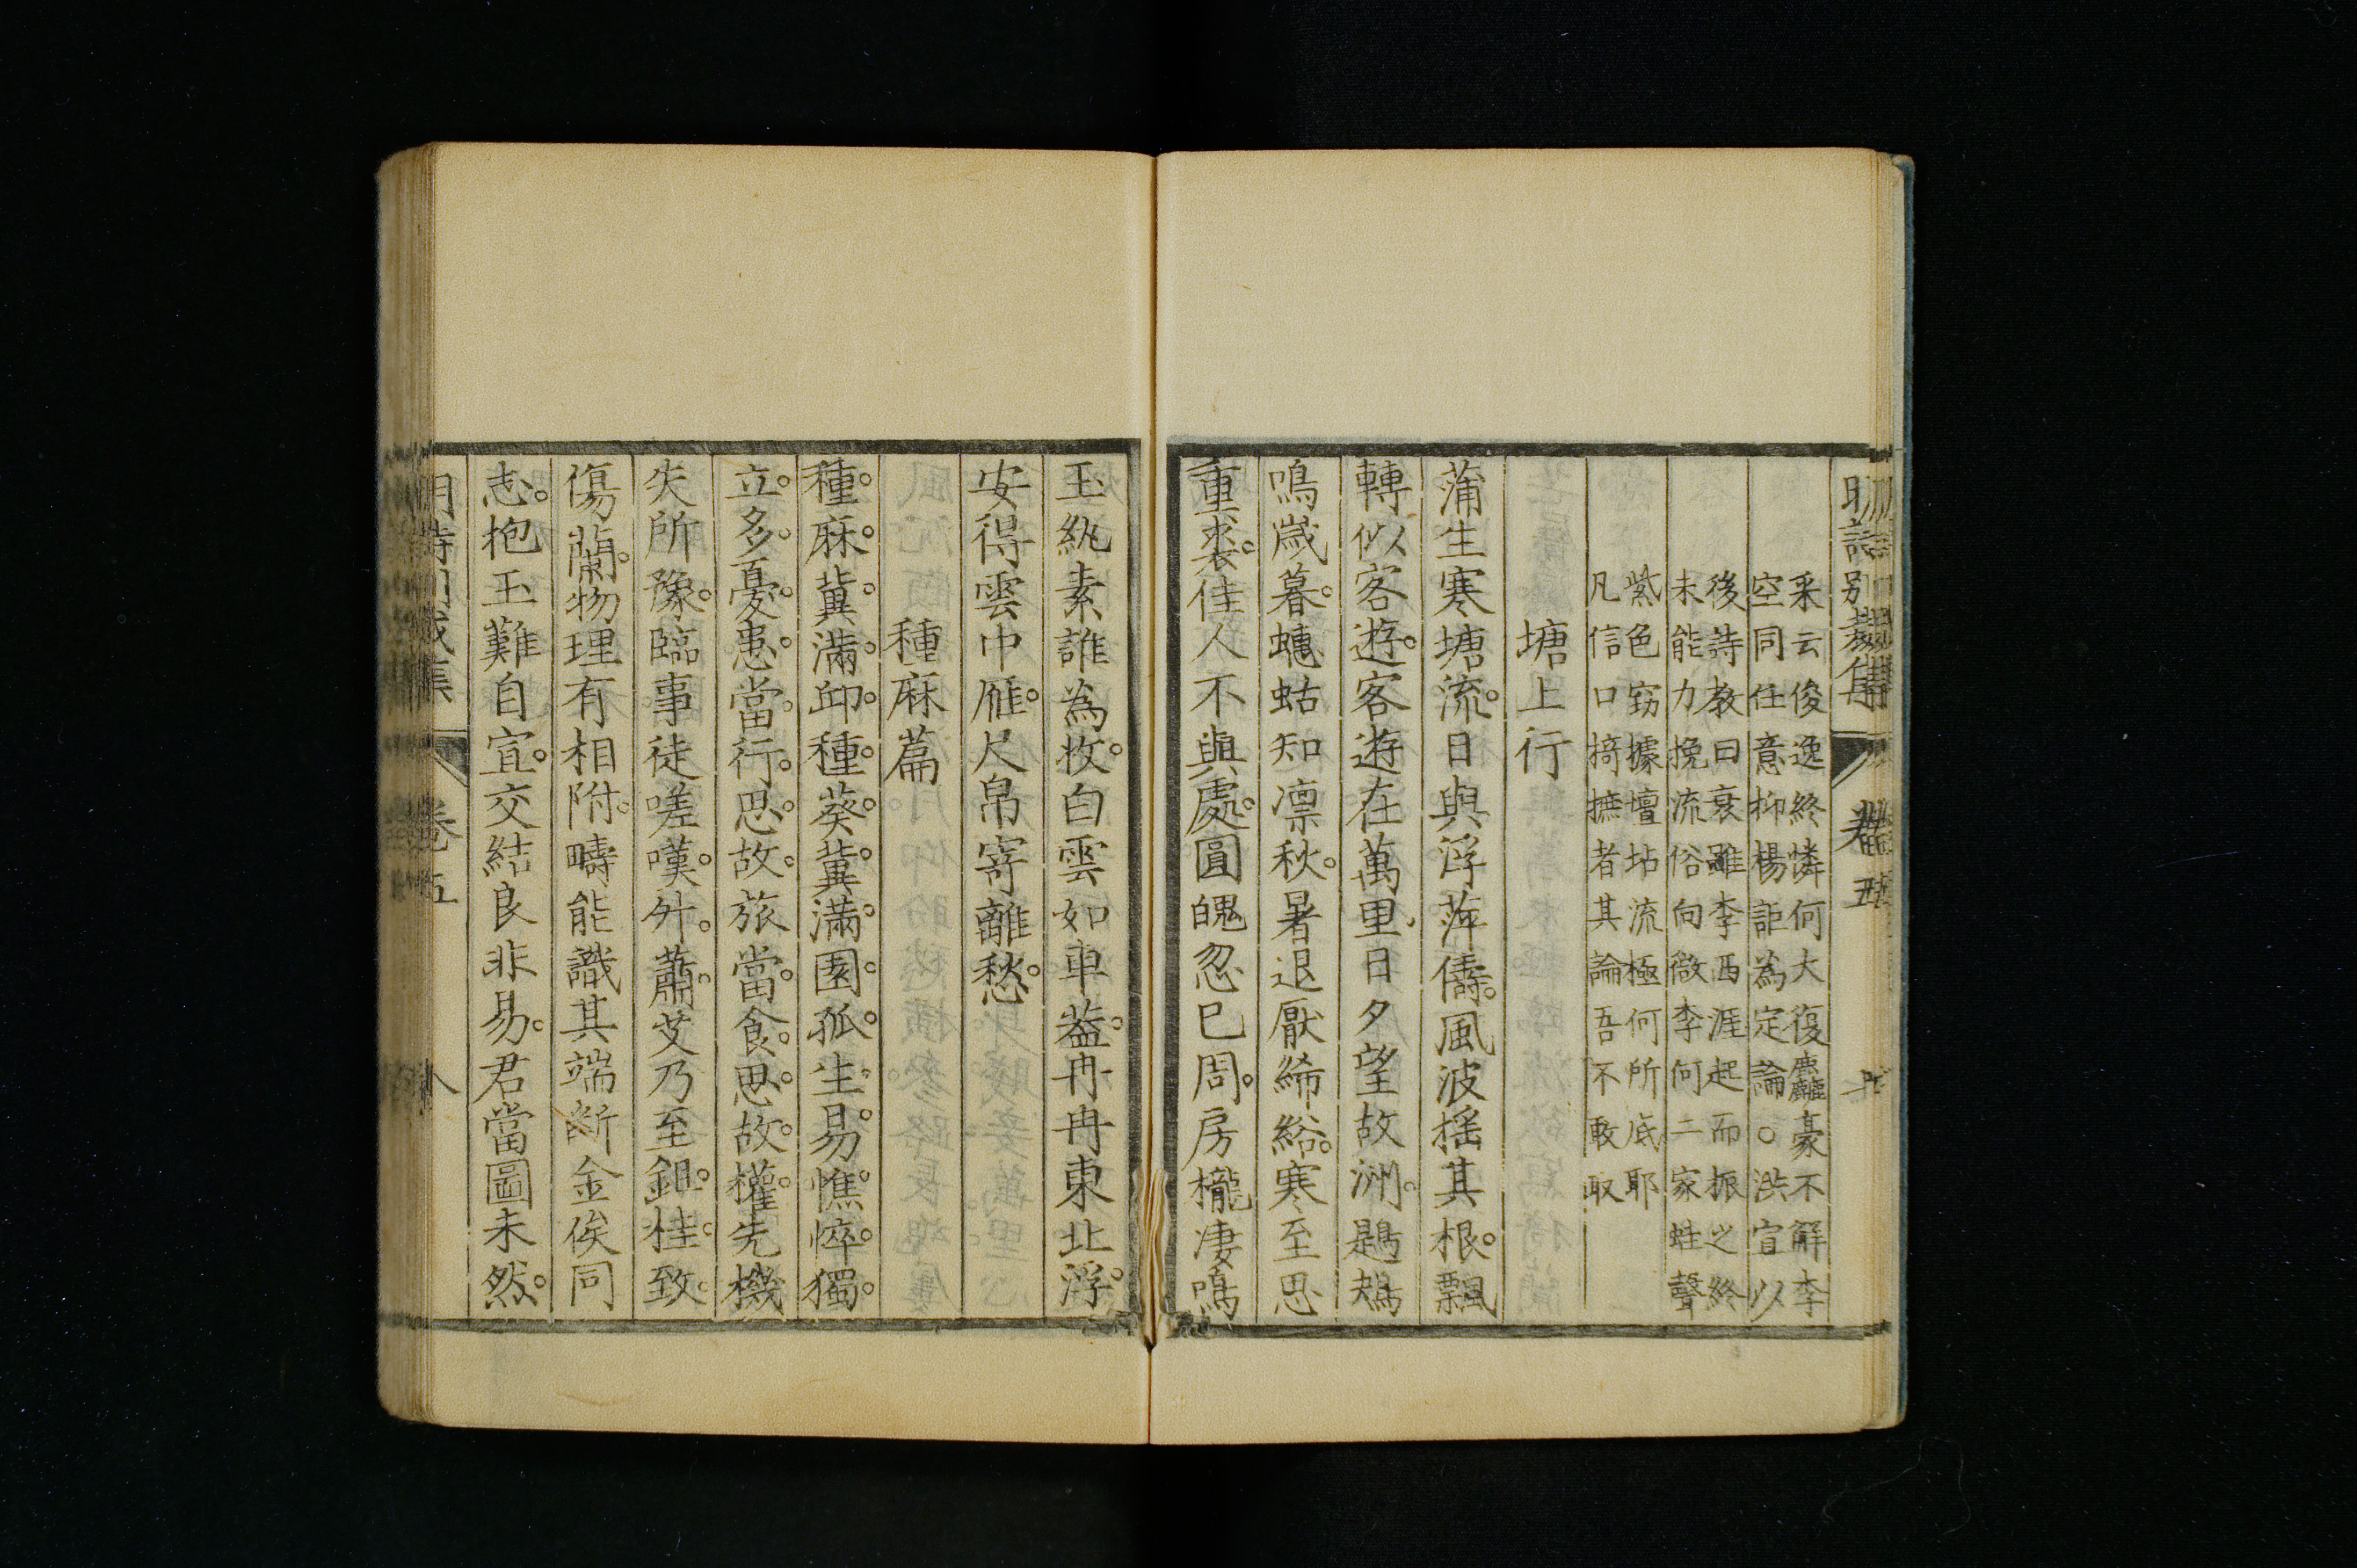 明詩別裁集 卷五
采云俊逸終憐何大復麤豪不解李
空同任意抑楊詎為定論○洪宣以
後詩教日衰雖李西涯起而振之終
未能力挽流俗向微李何二家蛙聲
紫色窃據壇坫流極何所底耶
凡信口掎摭者其論吾不敢取
塘上行
蒲生寒塘流日與浮萍儔風波搖其根飄
轉似客遊客遊在萬里日夕望故洲鶗鴂
鳴嵗暮蟪蛄知凛秋暑退厭絺綌寒至思
重裘佳人不與處圓魄忽已周房櫳凄鳴
玉紈素誰為收白雲如車蓋冉冉東北浮
安得雲中雁尺帛寄離愁
種麻篇
種麻冀滿邱種葵冀滿園孤生易憔悴獨
立多憂患當行思故旅當食思故權先機
失所豫臨事徒嗟嘆舛蕭艾乃至鉏桂致
傷蘭物理有相附疇能識其端斷金俟同
志抱玉難自宣交結良非易君當圖未然
明詩別裁集 卷五 八